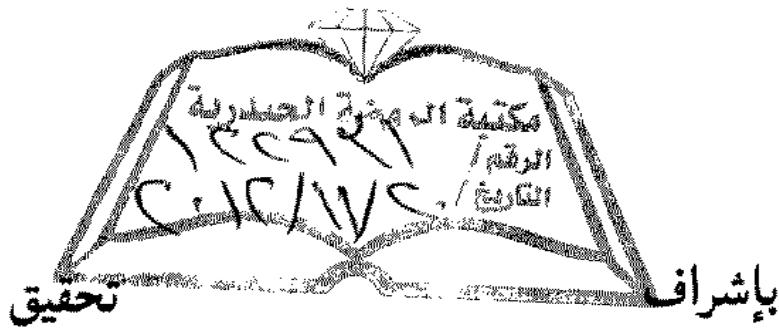 مكتبة الروضة الحيدرية
الرقم / ١٢٢٩٢١
التاريخ /
بإشراف
تحقيق